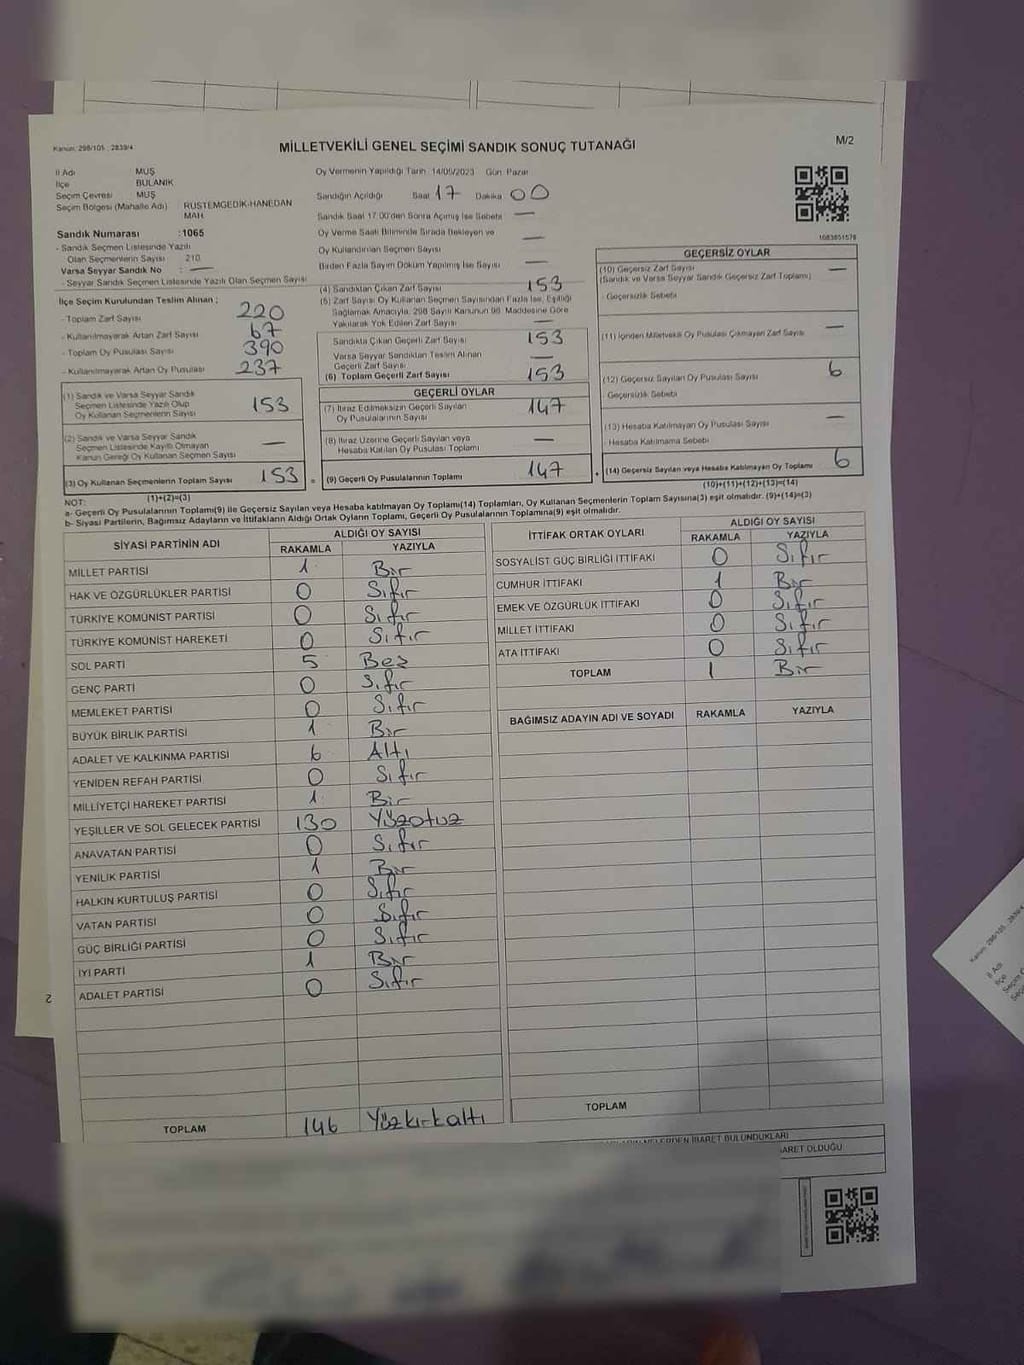 Kanun: 298/105 ; 2839/4
MİLLETVEKİLİ GENEL SEÇİMİ SANDIK SONUÇ TUTANAĞI
M/2
İl Adı MUŞ
İlçe BULANIK
Seçim Çevresi MUŞ
Seçim Bölgesi (Mahalle Adı) RÜSTEMGEDİK-HANEDAN MAH.
Sandık Numarası :1065
- Sandık Seçmen Listesinde Yazılı
Olan Seçmenlerin Sayısı 210
Varsa Seyyar Sandık No : —
- Seyyar Sandık Seçmen Listesinde Yazılı Olan Seçmen Sayısı
İlçe Seçim Kurulundan Teslim Alınan ;
- Toplam Zarf Sayısı 220
- Kullanılmayarak Artan Zarf Sayısı 67
- Toplam Oy Pusulası Sayısı 390
- Kullanılmayarak Artan Oy Pusulası 237
(1) Sandık ve Varsa Seyyar Sandık
Seçmen Listesinde Yazılı Olup
Oy Kullanan Seçmenlerin Sayısı 153
(2) Sandık ve Varsa Seyyar Sandık
Seçmen Listesinde Kayıtlı Olmayan
Kanun Gereği Oy Kullanan Seçmen Sayısı —
(3) Oy Kullanan Seçmenlerin Toplam Sayısı 153 =
(1)+(2)=(3)
Oy Vermenin Yapıldığı Tarih 14/05/2023 Gün: Pazar
Sandığın Açıldığı Saat 17 Dakika 00
Sandık Saat 17:00'den Sonra Açılmış İse Sebebi —
Oy Verme Saati Bitiminde Sırada Bekleyen ve
Oy Kullandırılan Seçmen Sayısı —
Birden Fazla Sayım Döküm Yapılmış İse Sayısı —
(4) Sandıktan Çıkan Zarf Sayısı 153
(5) Zarf Sayısı Oy Kullanan Seçmen Sayısından Fazla İse, Eşitliği
Sağlamak Amacıyla, 298 Sayılı Kanunun 98. Maddesine Göre
Yakılarak Yok Edilen Zarf Sayısı —
Sandıkta Çıkan Geçerli Zarf Sayısı 153
Varsa Seyyar Sandıktan Teslim Alınan
Geçerli Zarf Sayısı —
(6) Toplam Geçerli Zarf Sayısı 153
GEÇERLİ OYLAR
(7) İtiraz Edilmeksizin Geçerli Sayılan
Oy Pusulalarının Sayısı 147
(8) İtiraz Üzerine Geçerli Sayılan veya
Hesaba Katılan Oy Pusulası Toplamı —
(9) Geçerli Oy Pusulalarının Toplamı 147 +
1683651578
GEÇERSİZ OYLAR
(10) Geçersiz Zarf Sayısı —
(Sandık ve Varsa Seyyar Sandık Geçersiz Zarf Toplamı)
- Geçersizlik Sebebi
(11) İçinden Milletvekili Oy Pusulası Çıkmayan Zarf Sayısı —
(12) Geçersiz Sayılan Oy Pusulası Sayısı 6
- Geçersizlik Sebebi
(13) Hesaba Katılmayan Oy Pusulası Sayısı —
- Hesaba Katılmama Sebebi
(14) Geçersiz Sayılan veya Hesaba Katılmayan Oy Toplamı 6
(10)+(11)+(12)+(13)=(14)
NOT:
a- Geçerli Oy Pusulalarının Toplamı(9) ile Geçersiz Sayılan veya Hesaba katılmayan Oy Toplamı(14) Toplamları, Oy Kullanan Seçmenlerin Toplam Sayısına(3) eşit olmalıdır. (9)+(14)=(3)
b- Siyasi Partilerin, Bağımsız Adayların ve İttifakların Aldığı Ortak Oyların Toplamı, Geçerli Oy Pusulalarının Toplamına(9) eşit olmalıdır.
SİYASİ PARTİNİN ADI ALDIĞI OY SAYISI
RAKAMLA YAZIYLA
MİLLET PARTİSİ 1 Bir
HAK VE ÖZGÜRLÜKLER PARTİSİ 0 Sıfır
TÜRKİYE KOMÜNİST PARTİSİ 0 Sıfır
TÜRKİYE KOMÜNİST HAREKETİ 0 Sıfır
SOL PARTİ 5 Beş
GENÇ PARTİ 0 Sıfır
MEMLEKET PARTİSİ 0 Sıfır
BÜYÜK BİRLİK PARTİSİ 1 Bir
ADALET VE KALKINMA PARTİSİ 6 Altı
YENİDEN REFAH PARTİSİ 0 Sıfır
MİLLİYETÇİ HAREKET PARTİSİ 1 Bir
YEŞİLLER VE SOL GELECEK PARTİSİ 130 Yüzotuz
ANAVATAN PARTİSİ 0 Sıfır
YENİLİK PARTİSİ 1 Bir
HALKIN KURTULUŞ PARTİSİ 0 Sıfır
VATAN PARTİSİ 0 Sıfır
GÜÇ BİRLİĞİ PARTİSİ 0 Sıfır
İYİ PARTİ 1 Bir
ADALET PARTİSİ 0 Sıfır
TOPLAM 146 Yüzkırkaltı
İTTİFAK ORTAK OYLARI ALDIĞI OY SAYISI
RAKAMLA YAZIYLA
SOSYALİST GÜÇ BİRLİĞİ İTTİFAKI 0 Sıfır
CUMHUR İTTİFAKI 1 Bir
EMEK VE ÖZGÜRLÜK İTTİFAKI 0 Sıfır
MİLLET İTTİFAKI 0 Sıfır
ATA İTTİFAKI 0 Sıfır
TOPLAM 1 Bir
BAĞIMSIZ ADAYIN ADI VE SOYADI RAKAMLA YAZIYLA
TOPLAM
NELERDEN İBARET BULUNDUKLARI
İBARET OLDUĞU
2
Kanun: 298/105 ; 2839/4
İl Adı
İlçe
Seçim